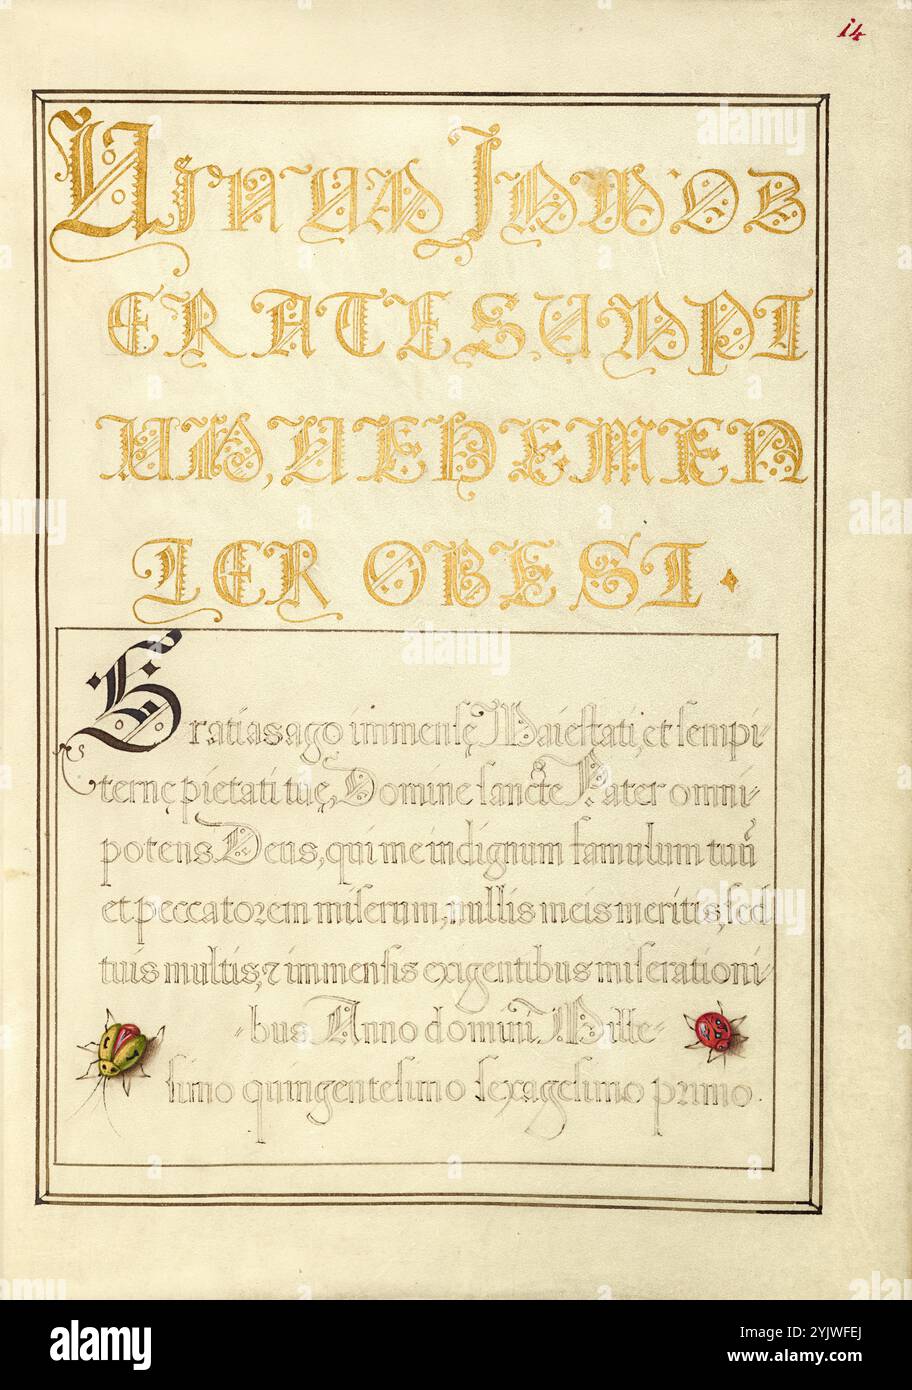 i4
VINUM IMMOD
ERATE SUMPT
UM, VEHEMEN
TER OBEST.
Gratias ago immensę Maiestati, et sempi-
ternę pietati tuę, Domine sancte Pater omni-
potens Deus, qui me indignum famulum tuū
et peccatorem miserum, nullis meis meritis, sed
tuis multis, & immensis exigentibus miserationi-
-bus Anno domini Mille-
simo quingentesimo sexagesimo primo.
alamy
Image ID: 2YJWFEJ
www.alamy.com